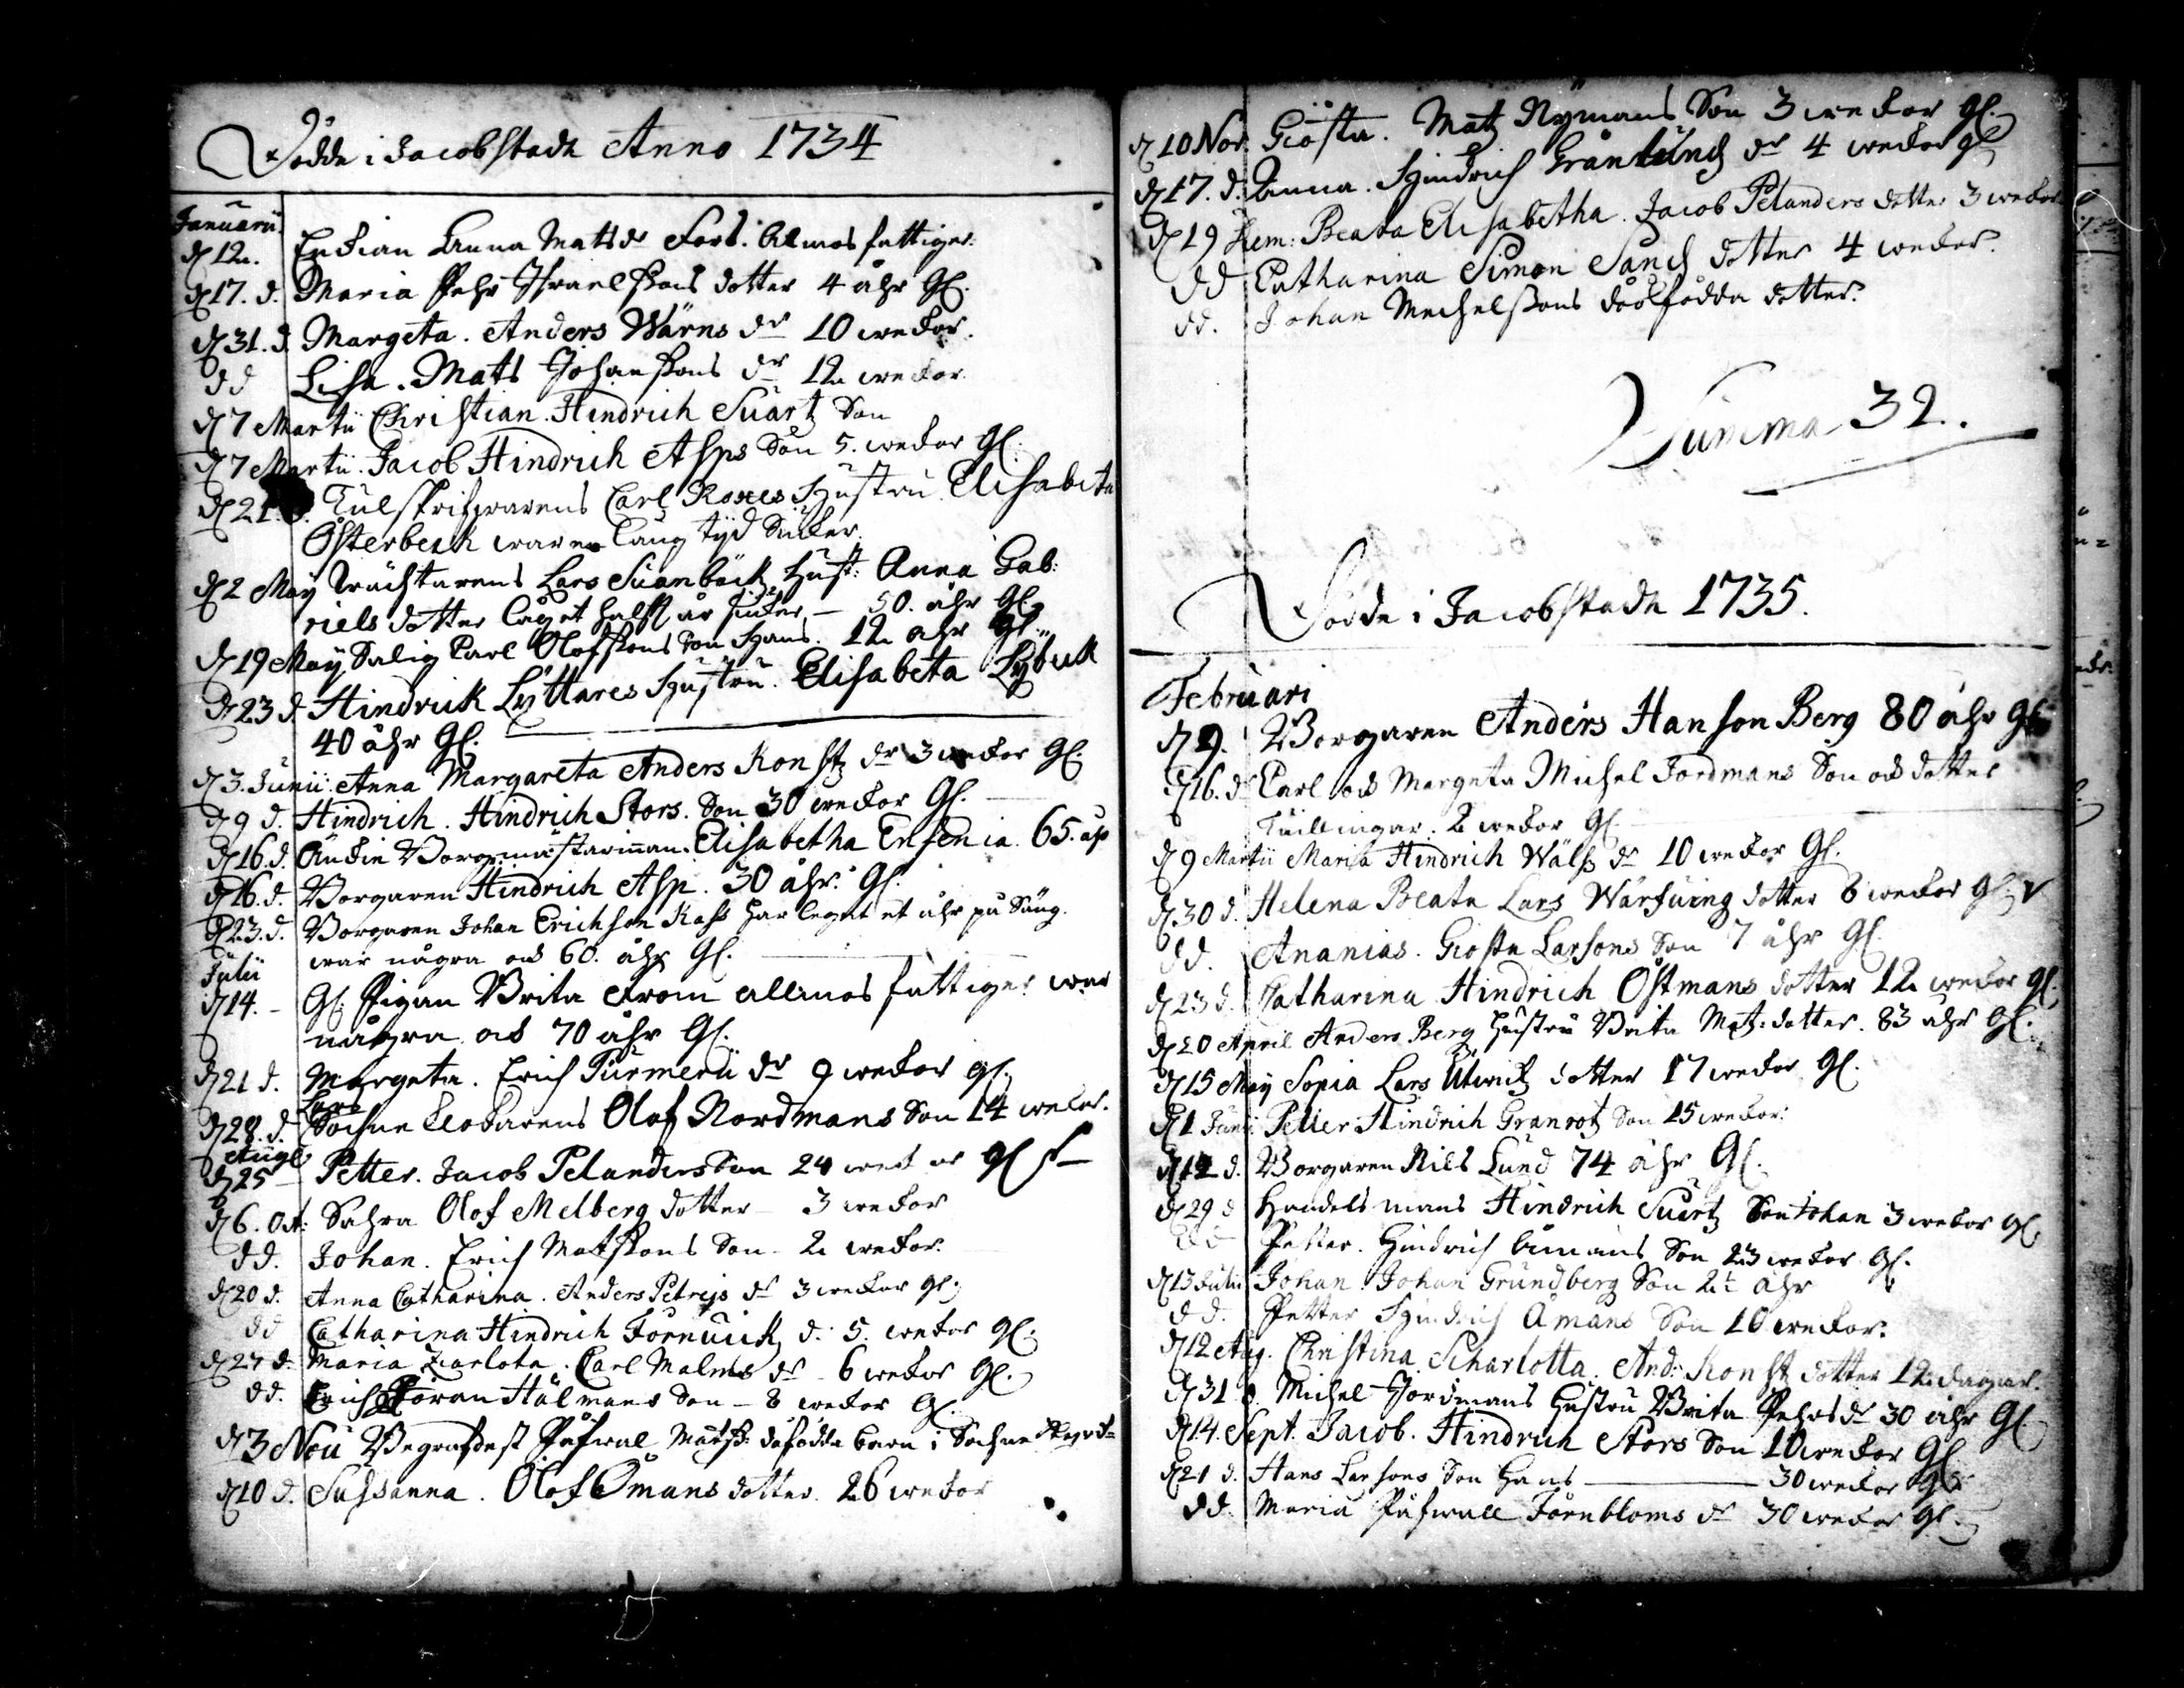 Dödde i Jacobstadh Anno 1734
Januarii
d 12. Enkian Anna Matsdr Fors. Allmos fattiger.
d 17. d. Maria Pehr Israelssons dotter 4 åhr Gl.
d 31. d. Margeta. Anders Wärns dr 10 wekor.
dd Lisa. Mats Johanssons dr 12 wekor.
d 7 Martii Christian. Hindrich Suartz Son
d 7 Martii. Jacob Hindrich Asps Son 5. wekor gl.
d 21. d. Tulskrifwarens Carl Roxes Hustru Elisabeta
Österbeck waren lang tijd Siuker.
d 2 Maij Wächtarens Lars Suanbäck Hust: Anna Gab:
riels dotter läget halft år siuker – 50. åhr Gl.
d 19 Maij Salig Carl Olofssons Son Hans. 12 åhr Gl.
d 23 d. Hindrick Lyttares Hustru. Elisabeta Lybeck
40 åhr Gl.
d 3. Junii. Anna Margareta Anders Konstz dr 3 wekor gl.
d 9 d. Hindrich. Hindrich Stors. Son 30 wekor Gl.
d 16. d. Änkie Borgmästarinnan. Elisabetha Ensenia. 65. åhr
d 16. d. Borgaren Hindrich Asp. 30 åhr. Gl.
d 23. d. Borgaren Johan Erichson Kass har legat et åhr på Säng.
war några och 60. åhr Gl.
Julii
d 14. – Gl. Pigan Brita From allmos fattiger war
några och 70 åhr Gl.
d 21 d. Margeta. Erich Purmerii dr 9 wekor gl.
Lars
d 28. d. Sochne Klokarens Olof Nordmans Son 14 wekor.
Augl
d 25 – Petter. Jacob Pelanders Son 24 wekor gl
d 6. Oct: Sahra Olof Melberg dotter – 3 wekor
dd. Johan. Erich Matssons Son – 2 wekor.
d 20 d. Anna Catharina. Anders Petrejs dr 3 wekor gl.
dd Catharina Hindrich Törnuick d: 5. wekor gl.
d 27 d. Maria Zarlota. Carl Malms dr – 6 wekor Gl.
dd. Erich Göran Hälmans Son – 8 wekor Gl.
d 3 Nou Begrafdest Påfwal Matss: döfödda barn i Sochne
d 10 d. Sussanna. Olof Ömans dotter. 26 wekor
d 10 Nov. Giösta. Matz Nymans Son 3 wekor gl.
d 17. d. Anna. Hindrich Grönlund dr 4 wekor gl
d 19 Beata Elisabetha. Jacob Pelanders dotter 3 wekor
dd Catharina Simon Sand dotter 4 wekor.
dd. Johan Mechelssons döölfödda dotter.
Summa 32.
Dödde i Jacobstadh 1735.
Februari
d 9. Borgaren Anders Hanson Berg 80 åhr gl
d 16. d Carl och Margeta Michel Jordmans Son och dotter
Tuillingar. 2 wekor gl
d 9 Martii Maria Hindrich Wälss dr 10 wekor Gl.
d 30 d. Helena Beata Lars Wärfuing dotter 8 wekor gl.
dd. Ananias. Giösta Larsons Son 7 åhr gl.
d 23 d. Catharina Hindrich Östmans dotter 12 wekor gl.
d 20 April Anders Berg Hustru Brita Matz: dotter. 83 åhr gl.
d 15 Maij Sopia Lars Utwick dotter 17 wekor Gl.
d 1 Junii Petter Hindrich Granrotz Son 15 wekor:
d 14 d. Borgaren Nils Lund 74 åhr Gl.
d 29 d Handels mans Hindrich Suartz Son Johan 3 wekor gl.
dd Petter. Hindrich Åmans Son 23 wekor gl.
d 13 Julii Johan. Johan Grundberg Son 2½ åhr
dd. Petter Hindrich Åmans Son 10 wekor.
d 12 Aug. Christina Scharlotta. And: Konst dotter 12 dagar.
d 31 d. Michel Jordmans Hustru Brita Pehrsdr 30 åhr Gl
d 14. Sept. Jacob. Hindrich Stors Son 10 wekor Gl
d 21 d. Hans Larsons Son Hans – 30 wekor gl
dd. Maria Påfwall Törnbloms dr 30 wekor gl.